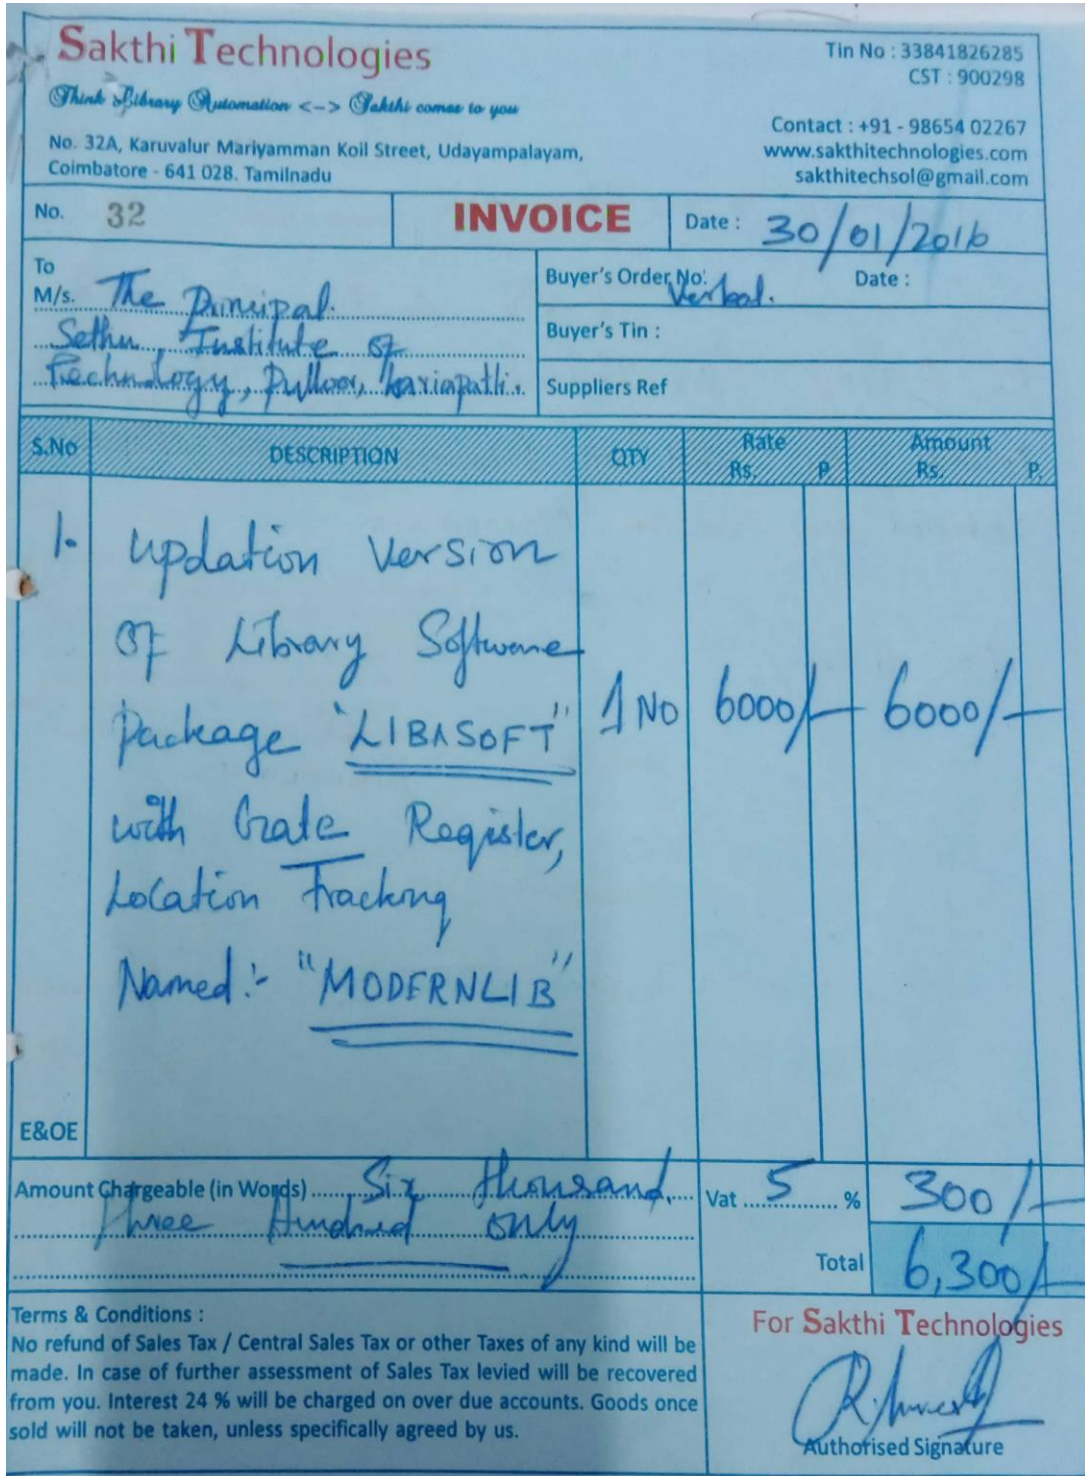 Sakthi Technologies
Think Library Automation <-> Sakthi comes to you
No. 32A, Karuvalur Mariyamman Koil Street, Udayampalayam,
Coimbatore - 641 028. Tamilnadu
Tin No : 33841826285
CST : 900298
Contact : +91 - 98654 02267
www.sakthitechnologies.com
sakthitechsol@gmail.com
No. 32
INVOICE
Date : 30/01/2016
To
M/s. The Principal.
Sethu Institute of
Technology, Pulloor, Kariapatti.
Buyer's Order No: Verbal. Date :
Buyer's Tin :
Suppliers Ref
S.No DESCRIPTION QTY Rate Rs. P. Amount Rs. P.
1. Updation Version
of Library Software
Package "LIBASOFT" 1 No 6000/- 6000/-
with Gate Register,
Location Tracking
Named:- "MODERNLIB"
E&OE
Amount Chargeable (in Words) Six thousand
Three Hundred only
Vat 5 % 300/-
Total 6,300/-
Terms & Conditions :
No refund of Sales Tax / Central Sales Tax or other Taxes of any kind will be
made. In case of further assessment of Sales Tax levied will be recovered
from you. Interest 24 % will be charged on over due accounts. Goods once
sold will not be taken, unless specifically agreed by us.
For Sakthi Technologies
Authorised Signature